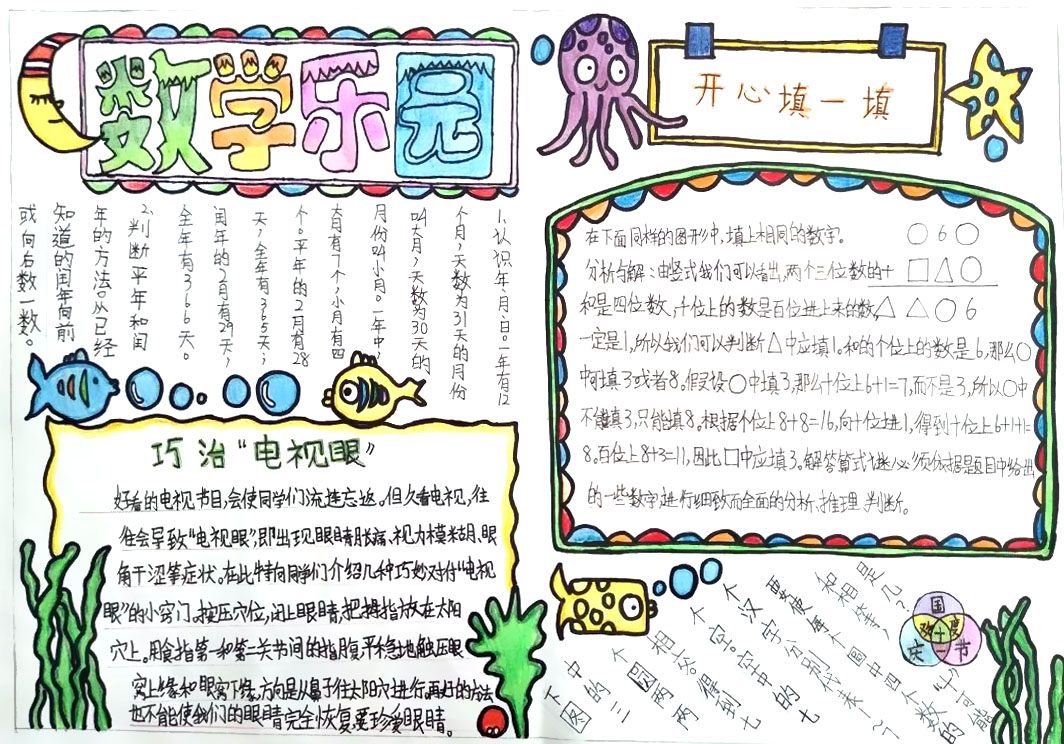 数学乐园
1、认识年、月、日。一年有12
个月,天数为31天的月份
叫大月,天数为30天的
月份叫小月。一年中,
大月有7个,小月有四
个。平年的2月有28
天,全年有365天;
闰年的2月有29天,
全年有366天。
2、判断平年和闰
年的方法。从已经
知道的闰年向前
或向后数一数。
巧治“电视眼”
好看的电视节目,会使同学们流连忘返。但久看电视,往
往会导致“电视眼”,即出现眼睛胀痛、视力模糊、眼
角干涩等症状。在此特向同学们介绍几种巧妙对付“电视
眼”的小窍门。按压穴位,闭上眼睛,把拇指放在太阳
穴上。用食指第一和第二关节间的指腹平稳地触压眼
窝上缘和眼窝下缘,方向是从鼻子往太阳穴进行,再好的方法
也不能使我们的眼睛完全恢复,要珍爱眼睛。
开心填一填
在下面同样的图形中,填上相同的数字。
○6○
+□△○
△△○6
分析与解:由竖式我们可以看出,两个三位数的
和是四位数,千位上的数是百位进上来的数,
一定是1,所以我们可以判断△中应填1。和的个位上的数是6,那么○
中可填3或者8。假设○中填3,那么十位上6+1=7,而不是3,所以○中
不能填3,只能填8。根据个位上8+8=16,向十位进1,得到十位上6+1+1=
8。百位上8+3=11,因此□中应填3。解答算式谜,必须依据题目中给出
的一些数字进行细致而全面的分析、推理、判断。
下图
中的三
个圆两两
相交得到七
个空。空中的七
个汉字分别代表1~7
要使每个圆中四个数的
和相等,“十”可能
是几?
国
欢十度
庆一节